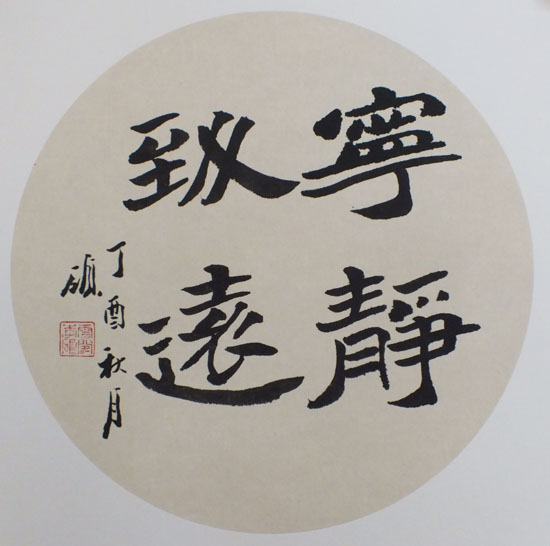 寧靜
致遠
丁酉秋月
碩